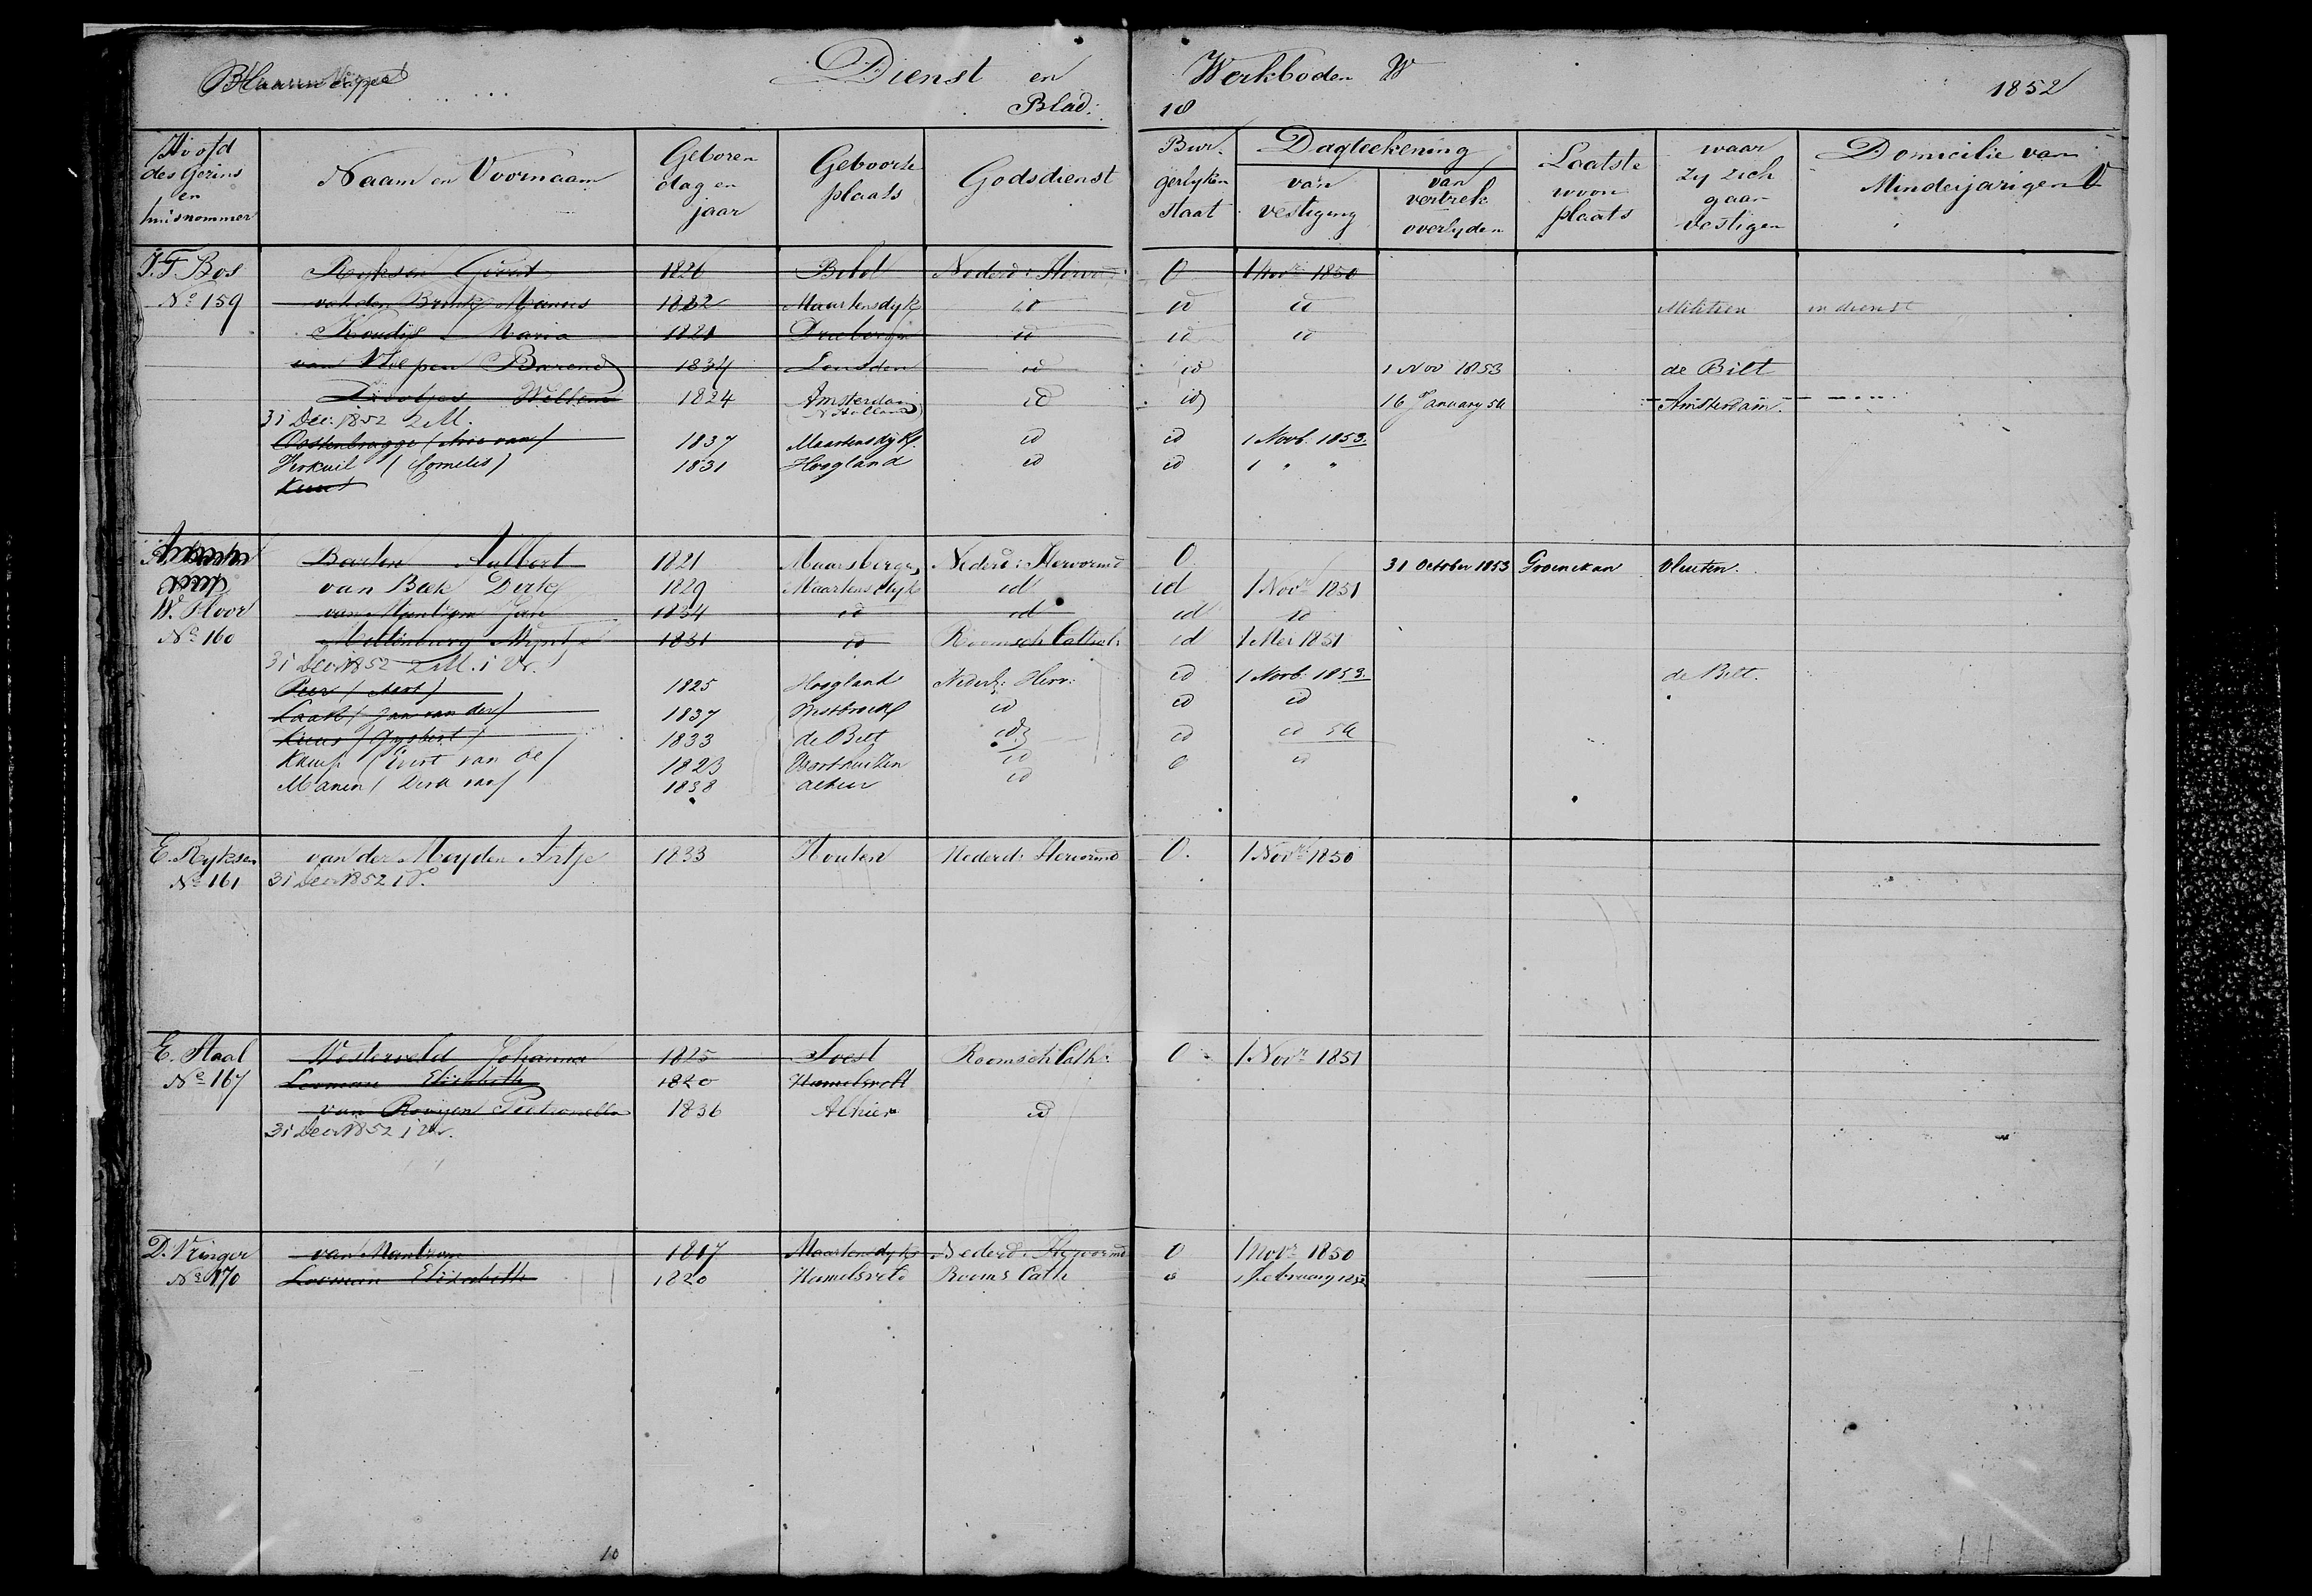 Blaauwkapel Dienst en Werkboden W 1852
Blad: 10
Hoofd des Gezins en huisnommer | Naam en Voornaam | Geboren dag en jaar | Geboorte plaats | Godsdienst | Burgerlyken Staat | Dagteekening van vestiging | van vertrek overlyden | Laatste woon plaats | waar zy zich gaan vestigen | Domicilie van Minderjarigen
J.F. Bos Ryksen Gerrit 1826 Nederd: Herv O 1 Novr 1850
No 159 van den Brink Manus 1832 Maartensdyk id id id Militien in dienst
Maria 1821 id id id
van Barend 1834 Leusden id id 1 Nov 1853 de Bilt
Willem 1824 Amsterdam id id 16 January 54 Amsterdam
N Holland
31 Dec: 1852 2 M.
Oostenbrugge (Arie van) 1837 Maartensdyk id id 1 Novb. 1853.
Verkuil (Cornelis) 1831 Hoogland id id 1 " "
Barten Aalbert 1821 Maarsbergen Nederd: Hervormd O 31 October 1853 Groenekan Vleuten.
van Bak Dirk 1829 Maartensdyk id id 1 Novr 1851
W. Floor van Jan 1834 id id id id
No 160 Myntje 1831 id Roomsch Cathol: id 1 Mei 1851
31 Decr 1852 2 M. 1 Vr.
Peer (Aart) 1825 Hoogland Nederl: Herv: id 1 Novb. 1853. de Bilt.
Laak (Jan van der) 1837 Westbroek id id id
(Gysbert) 1833 de Bilt id id id 54
Kamp (Evert van de) 1823 Voorthuizen id O id
Manen (Dirk van) 1838 alhier id
E. Ryksen van der Meyden Antje 1833 Houten Nederd: Hervormd O. 1 Novr 1850
No 161 31 Decr 1852 1 V.
E. Staal Westerveld Johanna 1825 Soest Roomsch Cath: O 1 Novr 1851
No 167 Looman Elizabeth 1820 Hamelsveld
van Rooyen Pietronella 1836 Alhier id
31 Decr 1852 1 Vr.
D. Vringer van Mantrom 1817 Maartensdyk Nederd: Hervormd O 1 Novr 1850
No 170 Looman Elizabeth 1820 Hamelsveld Rooms Cath o 1 February 1852
10